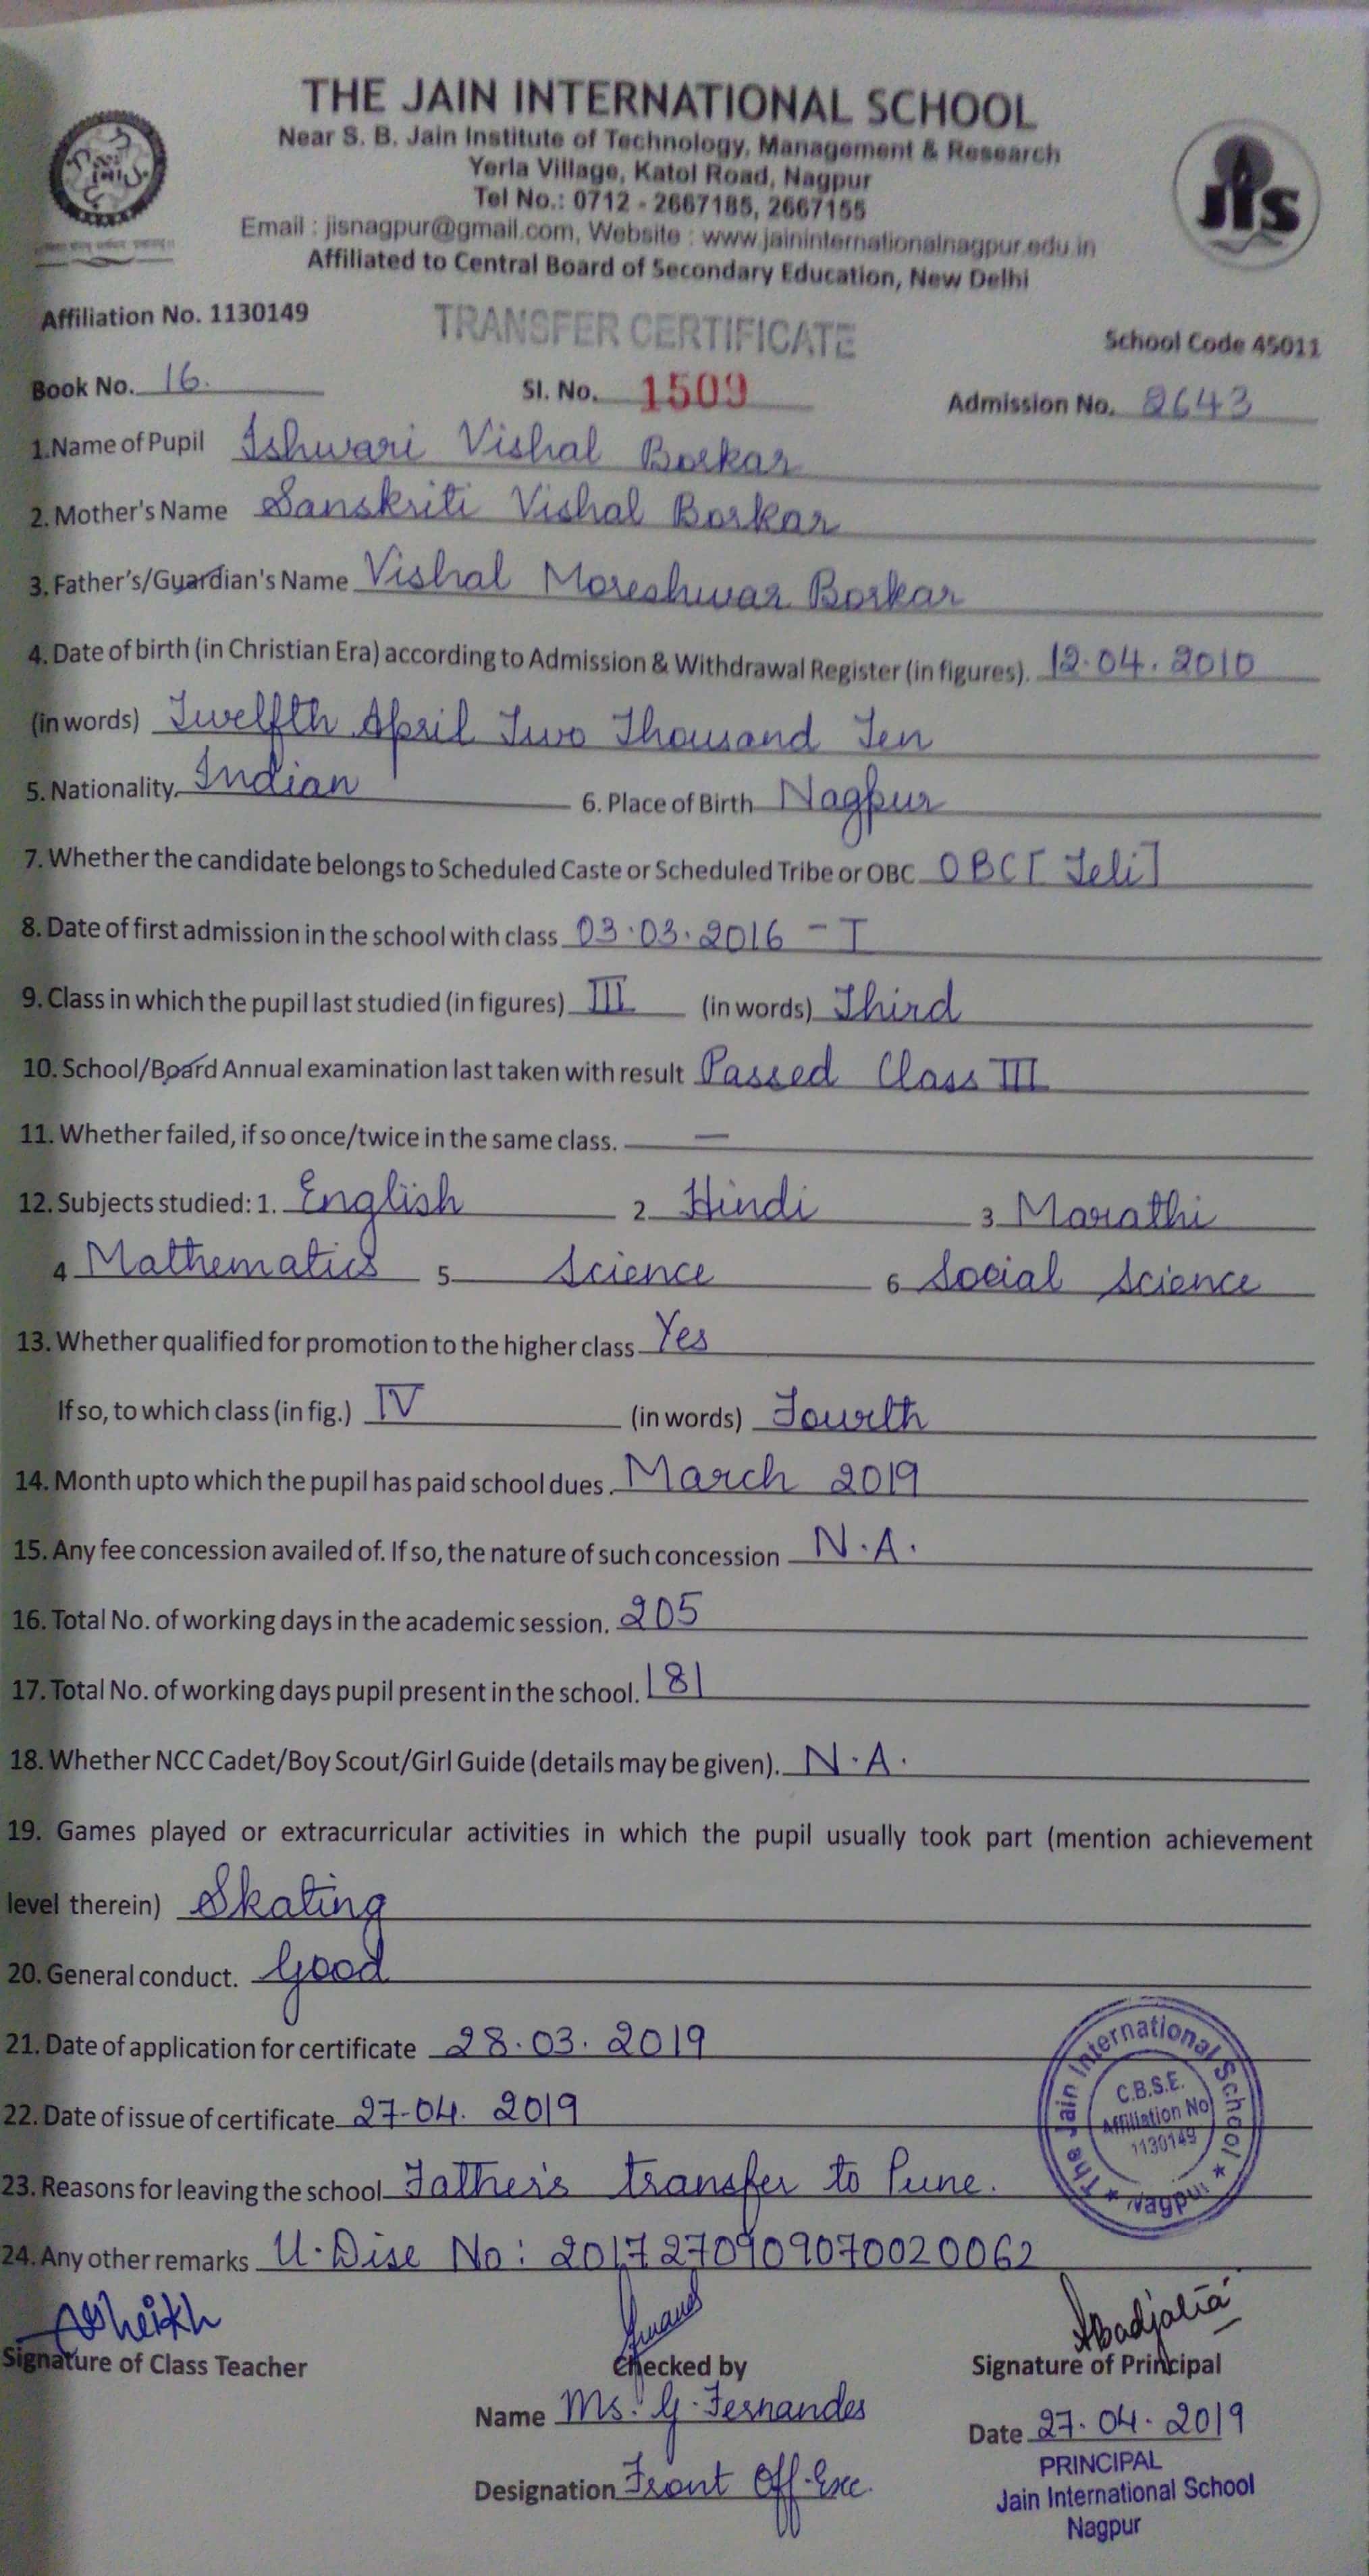 THE JAIN INTERNATIONAL SCHOOL
Near S. B. Jain Institute of Technology, Management & Research
Yerla Village, Katol Road, Nagpur
Tel No.: 0712 - 2667185, 2667155
Email : jisnagpur@gmail.com, Website : www.jaininternationalnagpur.edu.in
Affiliated to Central Board of Secondary Education, New Delhi
jis
Affiliation No. 1130149
TRANSFER CERTIFICATE
School Code 45011
Book No. 16. Sl. No. 1509 Admission No. 2643
1.Name of Pupil Ishwari Vishal Borkar
2. Mother's Name Sanskriti Vishal Borkar
3. Father's/Guardian's Name Vishal Moreshwar Borkar
4. Date of birth (in Christian Era) according to Admission & Withdrawal Register (in figures). 12.04.2010
(in words) Twelfth April Two Thousand Ten
5. Nationality. Indian 6. Place of Birth Nagpur
7. Whether the candidate belongs to Scheduled Caste or Scheduled Tribe or OBC OBC [Teli]
8. Date of first admission in the school with class 03.03.2016 - I
9. Class in which the pupil last studied (in figures) III (in words) Third
10. School/Board Annual examination last taken with result Passed Class III
11. Whether failed, if so once/twice in the same class. —
12. Subjects studied: 1. English 2 Hindi 3 Marathi
4 Mathematics 5 Science 6 Social Science
13. Whether qualified for promotion to the higher class Yes
If so, to which class (in fig.) IV (in words) Fourth
14. Month upto which the pupil has paid school dues. March 2019
15. Any fee concession availed of. If so, the nature of such concession N.A.
16. Total No. of working days in the academic session. 205
17. Total No. of working days pupil present in the school. 181
18. Whether NCC Cadet/Boy Scout/Girl Guide (details may be given). N.A.
19. Games played or extracurricular activities in which the pupil usually took part (mention achievement
level therein) Skating
20. General conduct. Good
21. Date of application for certificate 28.03.2019
22. Date of issue of certificate 27-04.2019
23. Reasons for leaving the school Father's transfer to Pune.
The Jain International School ★ Nagpur ★
C.B.S.E.
Affiliation No
1130149
24. Any other remarks U-Dise No: 2017270909070020062
Signature of Class Teacher Checked by Signature of Principal
Name Ms. G. Fernandes
Date 27.04.2019
Designation Front Off. Exe.
PRINCIPAL
Jain International School
Nagpur